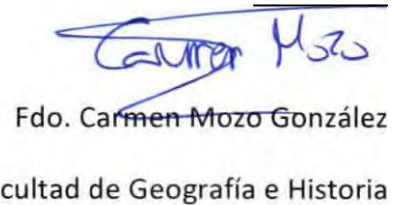 Carmen Mozo
Fdo. Carmen Mozo González
cultad de Geografía e Historia